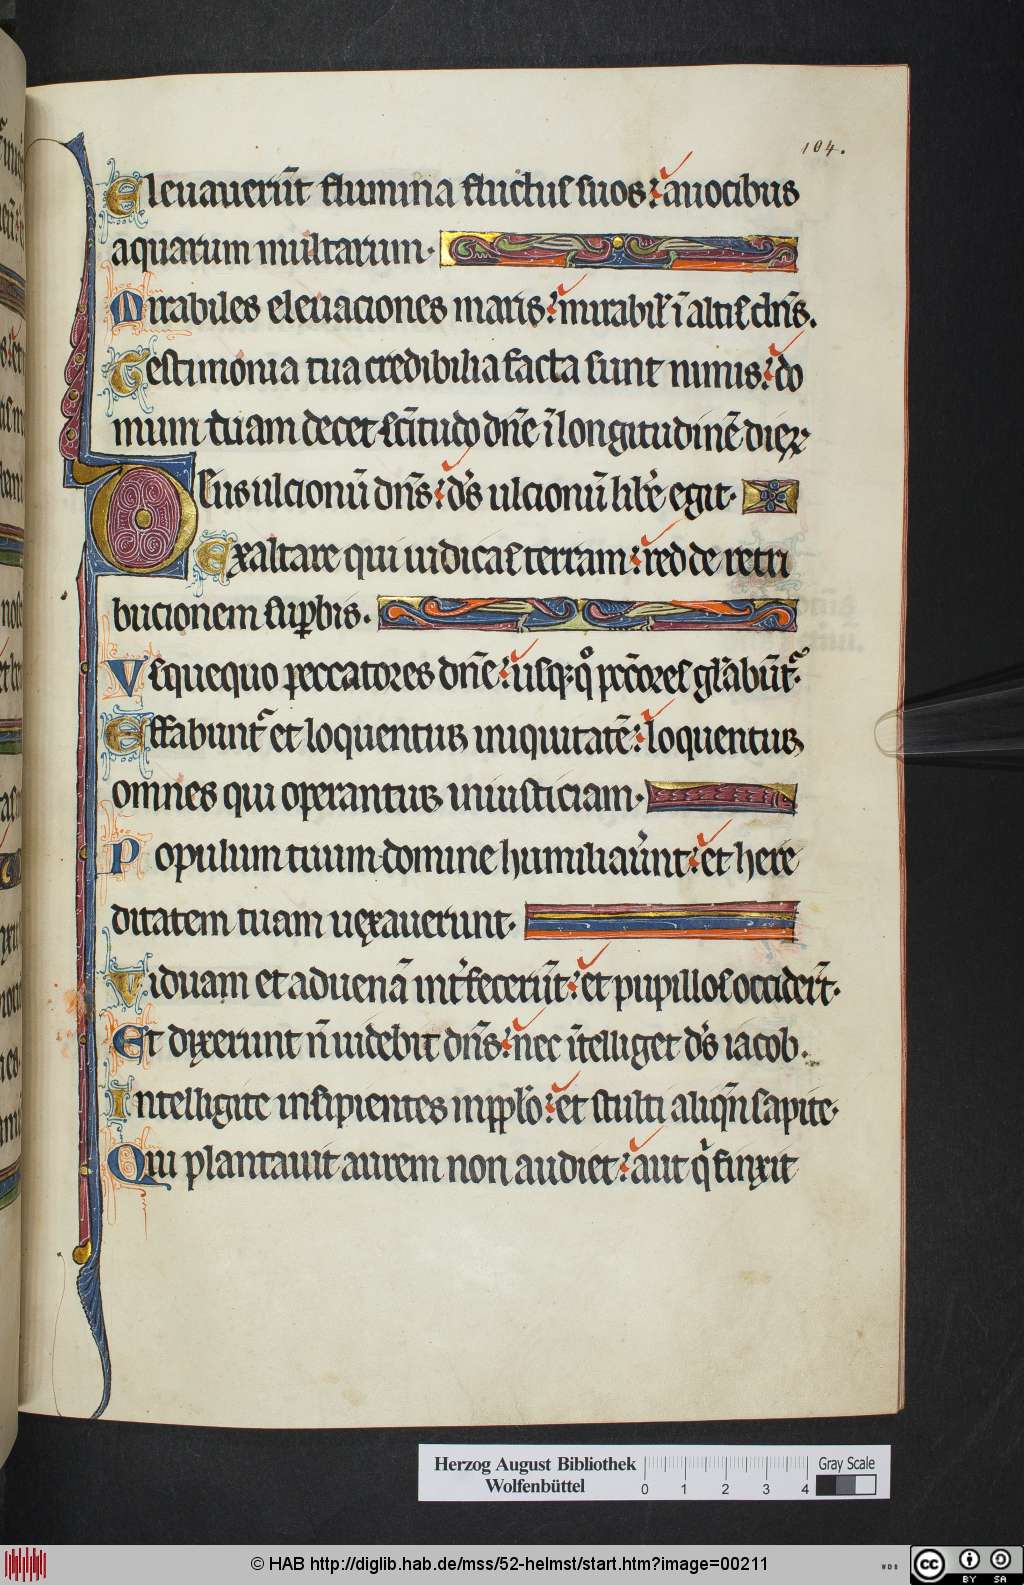 104.
Eleuauerūt flumina fluctus suos: auocibus
aquarum multarum.
Mirabiles eleuaciones maris: mirabil' ī altis dn̄s.
Testimonia tua credibilia facta sunt nimis: do
mum tuam decet sc̄itudo dn̄e ī longitudinē dieꝝ
Deus ulcionū dn̄s: ds̄ ulcionū lib'e egit.
Exaltare qui iudicas terram: redde retri
bucionem suꝑbis.
Vsquequo peccatores dn̄e: usq; qͦ pc̄c̄ores gl̄abūt᷑.
Effabunt᷑ et loquentur iniquitatē: loquentur
omnes qui operantur iniusticiam.
Populum tuum domine humiliau'nt: et here
ditatem tuam uexauerunt.
Viduam et aduenā int'fecerūt: et pupillos occiderūt.
Et dixerunt n̄ uidebit dn̄s: nec ītelliget ds̄ iacob.
Intelligite insipientes inpp̄lo: et stulti aliqn̄ sapite.
Qui plantauit aurem non audiet: aut qͥ finxit
Herzog August Bibliothek
Wolfenbüttel
0 1 2 3 4
Gray Scale
© HAB http://diglib.hab.de/mss/52-helmst/start.htm?image=00211
cc BY SA